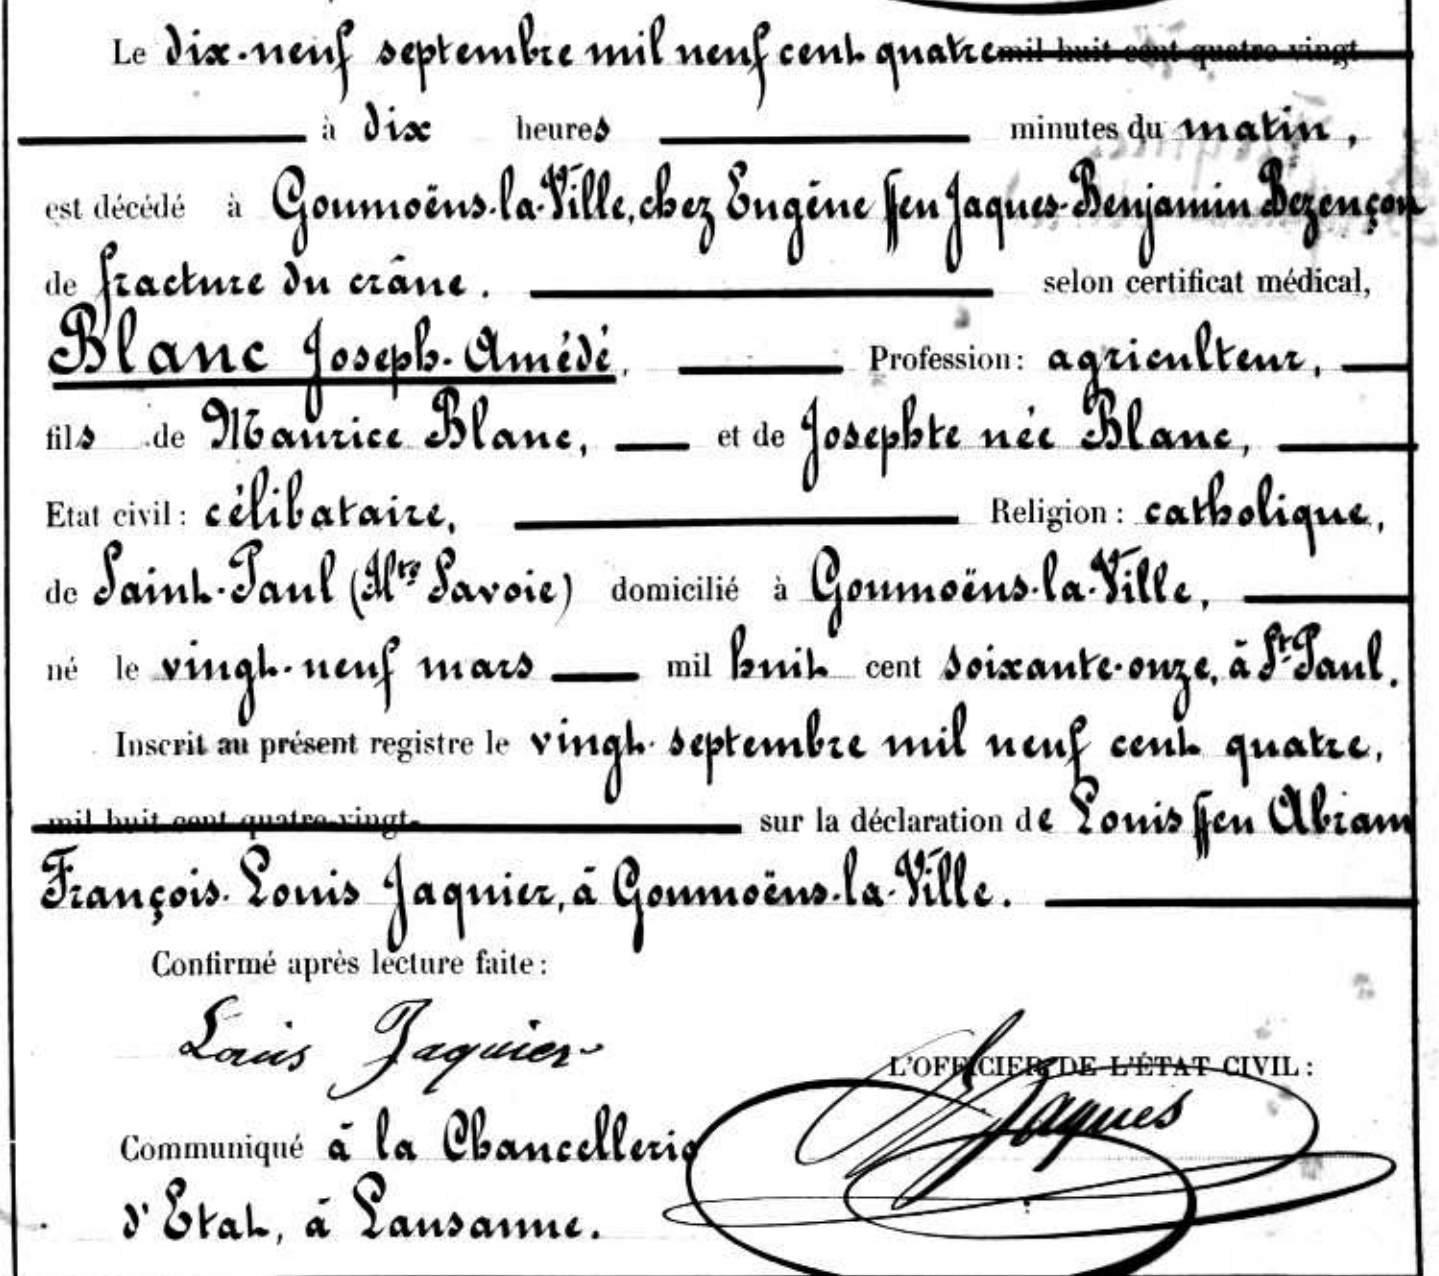 Le dix-neuf septembre mil neuf cent quatre mil huit cent quatre-vingt
à dix heures minutes du matin,
est décédé à Goumoëns-la-Ville, chez Eugène ffeu Jaques-Benjamin Bezençon
de fracture du crâne. selon certificat médical,
Blanc Joseph-Amédé, Profession: agriculteur,
fils de Maurice Blanc, et de Josephte née Blanc,
Etat civil: célibataire, Religion: catholique,
de Saint-Paul (Hte Savoie) domicilié à Goumoëns-la-Ville,
né le vingt-neuf mars mil huit cent soixante-onze, à St Paul.
Inscrit au présent registre le vingt septembre mil neuf cent quatre,
mil huit cent quatre-vingt- sur la déclaration de Louis ffeu Abram
François-Louis Jaquier, à Goumoëns-la-Ville.
Confirmé après lecture faite:
Louis Jaquier
L'OFFICIER DE L'ÉTAT CIVIL:
Jaques
Communiqué à la Chancellerie
d'Etat, à Lausanne.